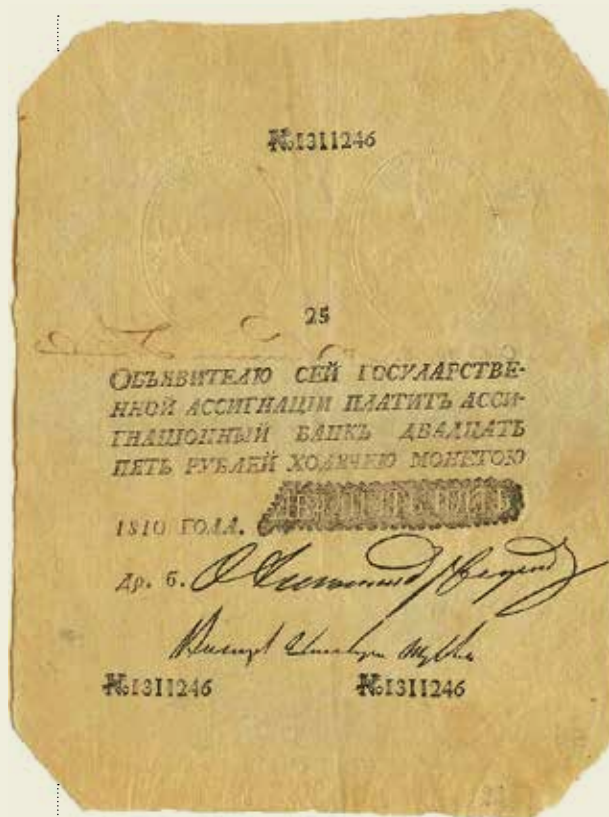 №1311246
25
ОБЪЯВИТЕЛЮ СЕЙ ГОСУДАРСТВЕ-
ННОЙ АССИГНАЦІИ ПЛАТИТЪ АССИ-
ГНАЦІОННЫЙ БАНКЪ ДВАДЦАТЬ
ПЯТЬ РУБЛЕЙ ХОДЯЧЕЮ МОНЕТОЮ
1810 ГОДА. ДВАДЦАТЬ ПЯТЬ
Др. б.
№1311246 №1311246